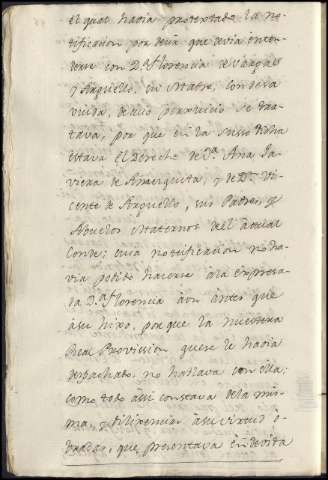 el qual havia protextado la no-
tificacion por decir que devia enten-
derse con D.ª Florencia de Vargas
y Arguello, su Madre, Condesa
viuda, de cuio perxuicio se tra-
tava, por que en la susodicha
estava el Derecho de D.ª Ana Ja-
viera de Amezquita, y de D.n Vi-
cente de Arguello, sus Padres, y
Abuelos Maternos del actual
Conde; cuia notificacion no ha-
via podido hacerse a la expresa-
da D.ª Florencia aun antes que
a su hixo, por que la nuestra
Real Provision, que se le havia
despachado, no hablava con ella;
como todo asi constava de la mis-
ma, y dilixencias a su virtud o-
bradas, que presentava en devida